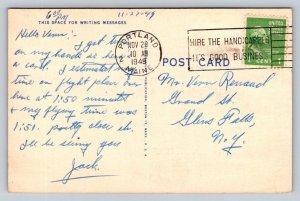 11-27-49
THIS SPACE FOR WRITING MESSAGES
Hello Venn:
I got time
on my hands so here's
a card. I estimated my
time on flight plan from
here at 1:50 minutes
& my flying time was
1:51. pretty close eh.
I'll be seeing you
Jack.
PORTLAND
NOV 28
10
1949
MAINE
2
HIRE THE HANDICAPPED
IT'S GOOD BUSINESS
POST CARD
Mr. Venn Renaud
Grand St.
Glens Falls,
N.Y.